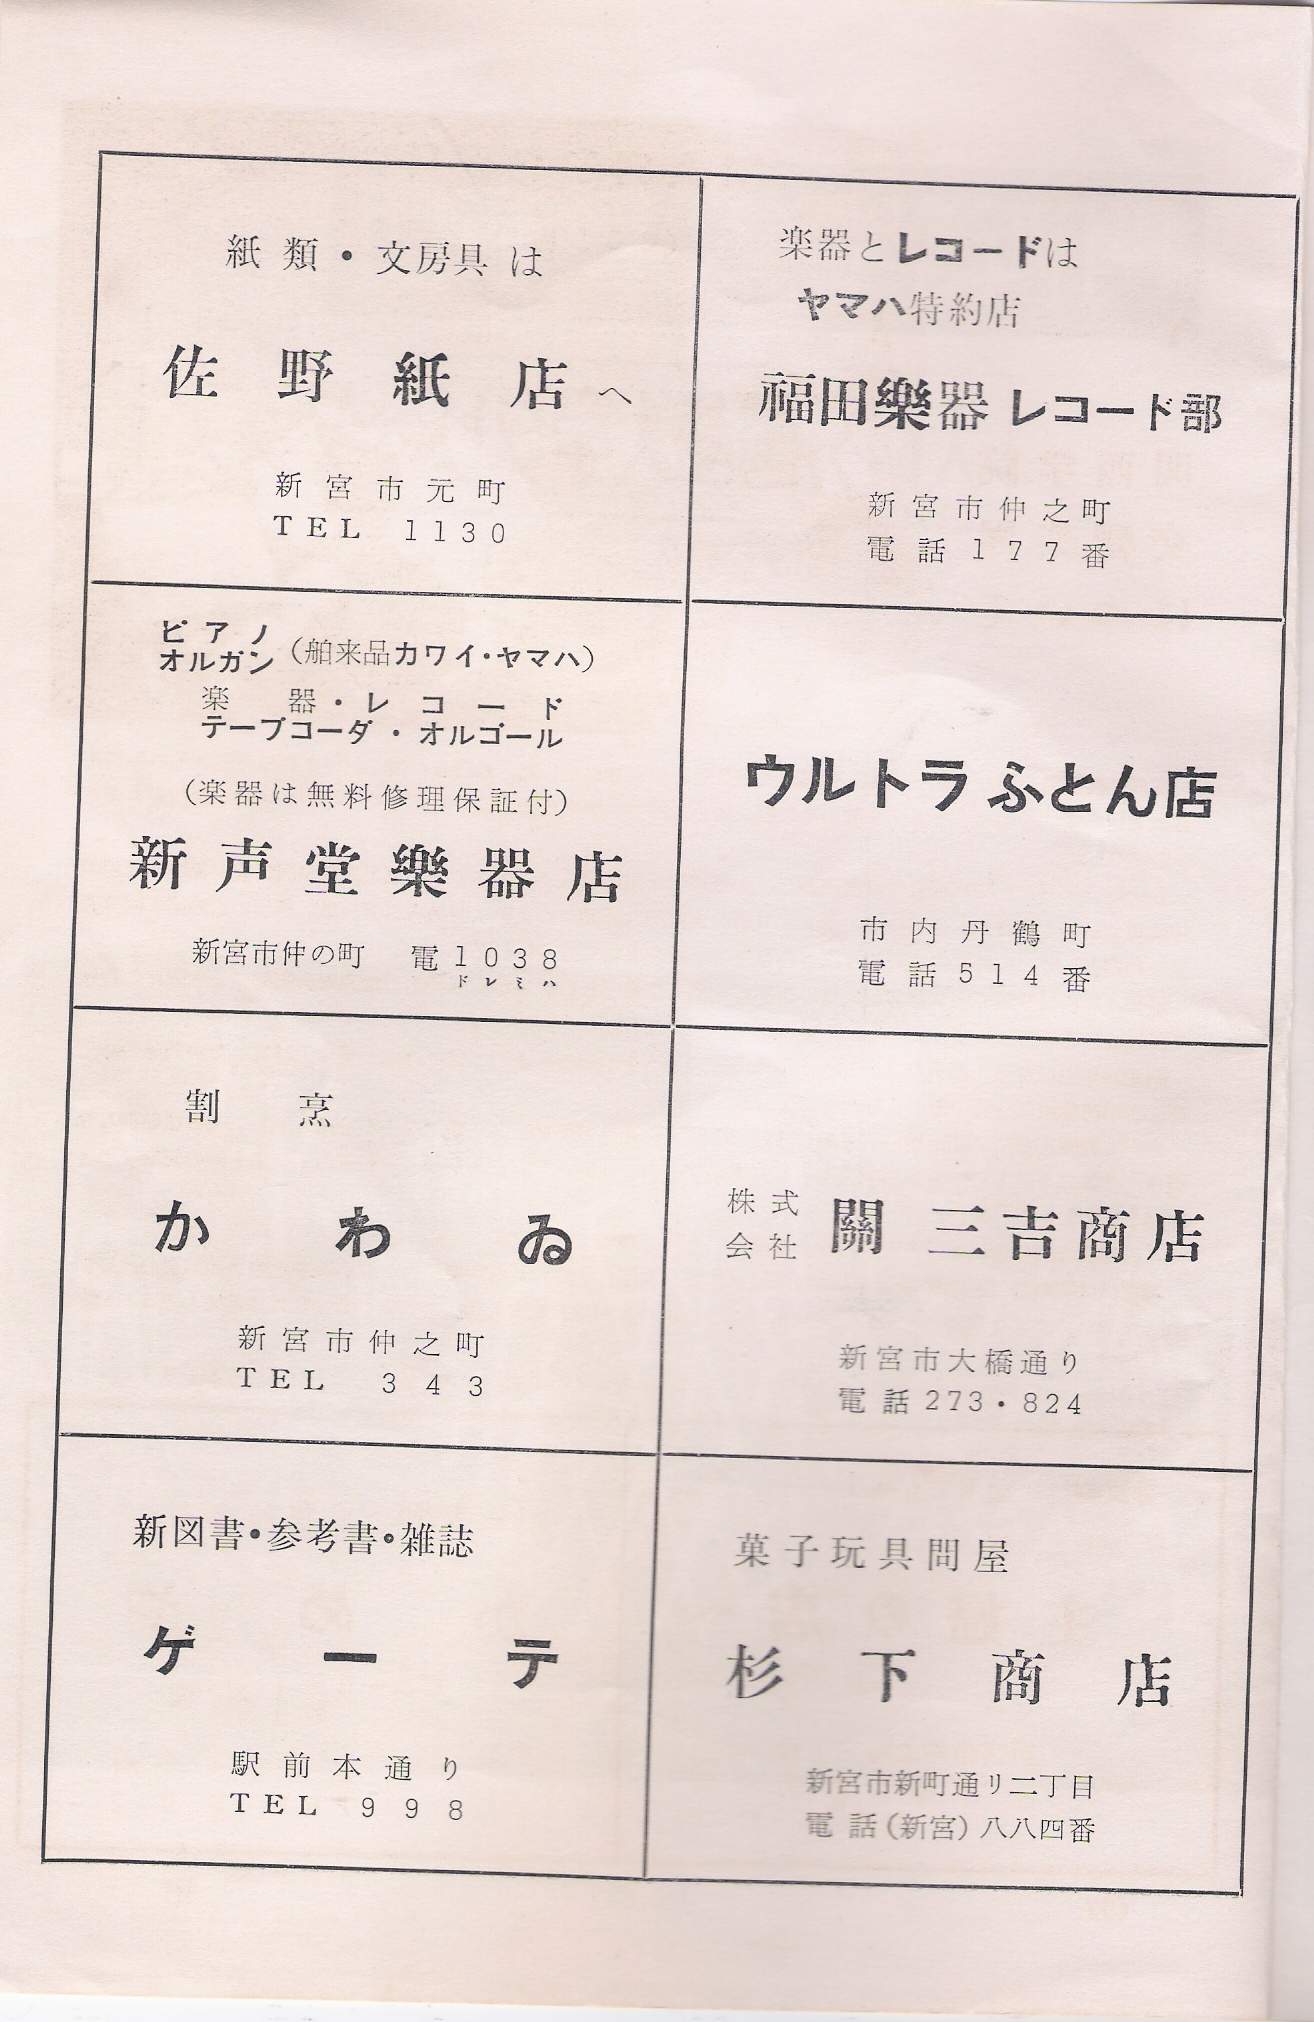 紙類・文房具は
佐野紙店へ
新宮市元町
TEL 1130
楽器とレコードは
ヤマハ特約店
福田樂器レコード部
新宮市仲之町
電話177番
ピアノ
オルガン(舶来品カワイ・ヤマハ)
楽器・レコード
テープコーダ・オルゴール
(楽器は無料修理保証付)
新声堂樂器店
新宮市仲の町 電1038
ドレミハ
ウルトラふとん店
市内丹鶴町
電話514番
割烹
かわゐ
新宮市仲之町
TEL 343
株式
会社 關三吉商店
新宮市大橋通り
電話273・824
新図書・参考書・雑誌
ゲーテ
駅前本通り
TEL 998
菓子玩具問屋
杉下商店
新宮市新町通リ二丁目
電話(新宮)八八四番